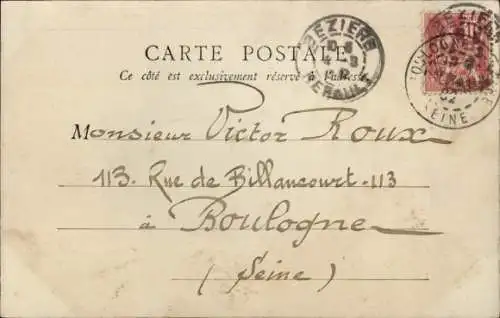 CARTE POSTALE
Ce côté est exclusivement réservé à l'adresse
BÉZIERS
HÉRAULT
BOULOGNE
SEINE
Monsieur Victor Roux
113. Rue de Billancourt-113
à Boulogne
(Seine)